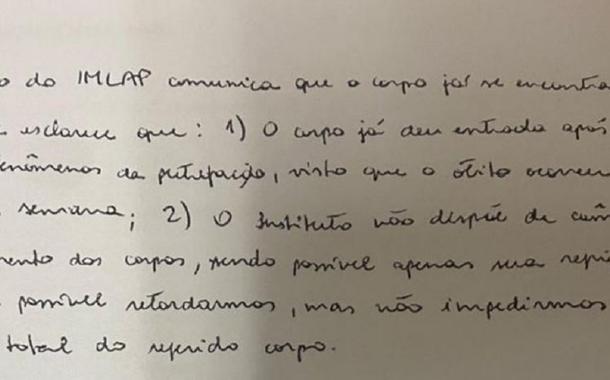 o do IMLAP comunica que o corpo já se encontra
esclarece que: 1) O corpo já deu entrada após
fenômenos da putrefação, visto que o óbito ocorreu
semana; 2) O Instituto não dispõe de câm
mento dos corpos, sendo possível apenas sua
possível retardarmos, mas não impedirmos
total do referido corpo.